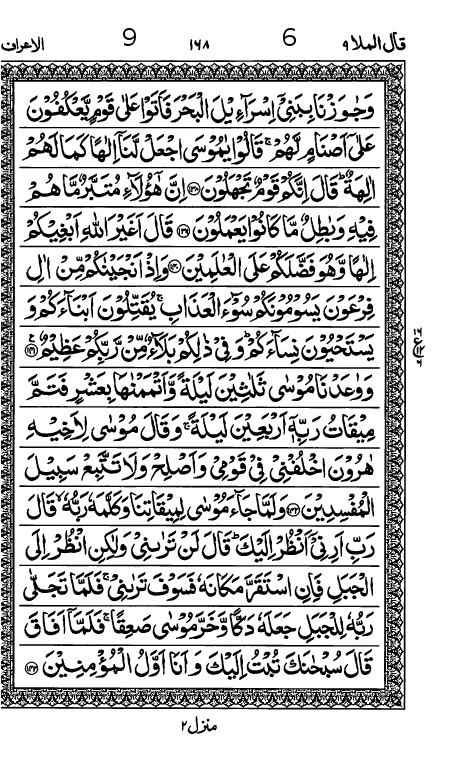 قال الملا ٩ 6 ١٦٨ 9 الاعراف
وَجٰوَزْنَا بِبَنِیْۤ اِسْرَآءِیْلَ الْبَحْرَ فَاَتَوْا عَلٰی قَوْمٍ یَّعْكُفُوْنَ
عَلٰۤی اَصْنَامٍ لَّهُمْ ۚ قَالُوْا یٰمُوْسَی اجْعَلْ لَّنَاۤ اِلٰهًا كَمَا لَهُمْ
اٰلِهَةٌ ؕ قَالَ اِنَّكُمْ قَوْمٌ تَجْهَلُوْنَ ﴿۱۳۸﴾ اِنَّ هٰۤؤُلَآءِ مُتَبَّرٌ مَّا هُمْ
فِیْهِ وَبٰطِلٌ مَّا كَانُوْا یَعْمَلُوْنَ ﴿۱۳۹﴾ قَالَ اَغَیْرَ اللّٰهِ اَبْغِیْكُمْ
اِلٰهًا وَّهُوَ فَضَّلَكُمْ عَلَی الْعٰلَمِیْنَ ﴿۱۴۰﴾ وَاِذْ اَنْجَیْنٰكُمْ مِّنْ اٰلِ
فِرْعَوْنَ یَسُوْمُوْنَكُمْ سُوْٓءَ الْعَذَابِ ۚ یُقَتِّلُوْنَ اَبْنَآءَكُمْ وَ
یَسْتَحْیُوْنَ نِسَآءَكُمْ ؕ وَفِیْ ذٰلِكُمْ بَلَآءٌ مِّنْ رَّبِّكُمْ عَظِیْمٌ ﴿۱۴۱﴾
وَوٰعَدْنَا مُوْسٰی ثَلٰثِیْنَ لَیْلَةً وَّاَتْمَمْنٰهَا بِعَشْرٍ فَتَمَّ
مِیْقَاتُ رَبِّهٖۤ اَرْبَعِیْنَ لَیْلَةً ۚ وَقَالَ مُوْسٰی لِاَخِیْهِ
هٰرُوْنَ اخْلُفْنِیْ فِیْ قَوْمِیْ وَاَصْلِحْ وَلَا تَتَّبِعْ سَبِیْلَ
الْمُفْسِدِیْنَ ﴿۱۴۲﴾ وَلَمَّا جَآءَ مُوْسٰی لِمِیْقَاتِنَا وَكَلَّمَهٗ رَبُّهٗ ۙ قَالَ
رَبِّ اَرِنِیْۤ اَنْظُرْ اِلَیْكَ ؕ قَالَ لَنْ تَرٰىنِیْ وَلٰكِنِ انْظُرْ اِلَی
الْجَبَلِ فَاِنِ اسْتَقَرَّ مَكَانَهٗ فَسَوْفَ تَرٰىنِیْ ۚ فَلَمَّا تَجَلّٰی
رَبُّهٗ لِلْجَبَلِ جَعَلَهٗ دَكًّا وَّخَرَّ مُوْسٰی صَعِقًا ۚ فَلَمَّاۤ اَفَاقَ
قَالَ سُبْحٰنَكَ تُبْتُ اِلَیْكَ وَاَنَا اَوَّلُ الْمُؤْمِنِیْنَ ﴿۱۴۳﴾
منزل ٢